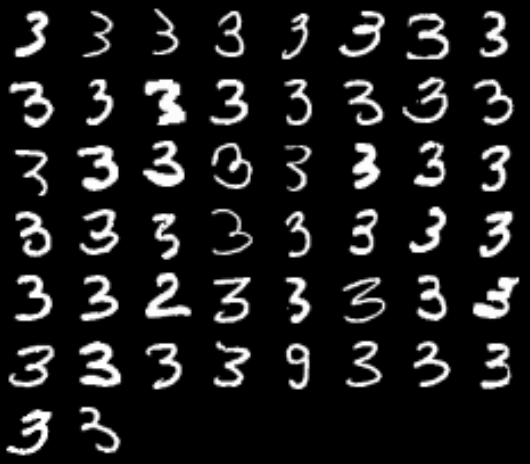 3 3 3 3 3 3 3 3
3 3 3 3 3 3 3 3
3 3 3 3 3 3 3 3
3 3 3 3 3 3 3 3
3 3 2 3 3 3 3 3
3 3 3 3 9 3 3 3
3 3